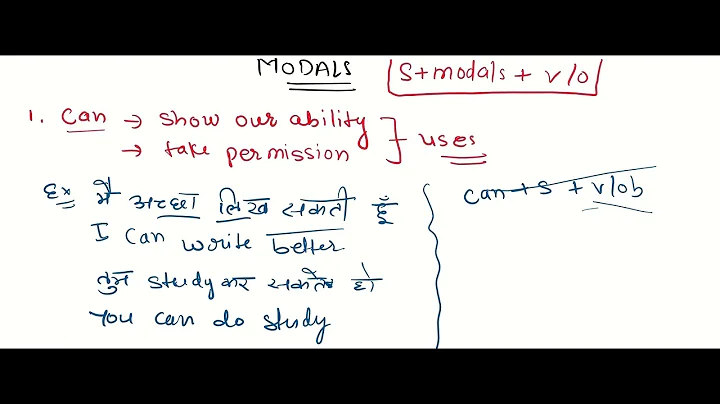 MODALS S+modals + v/o
1. can → show our ability
→ take permission } uses
Ex मैं अच्छा लिख सकती हूँ
I can write better
तुम study कर सकते हो
You can do study
can + s + v/ob